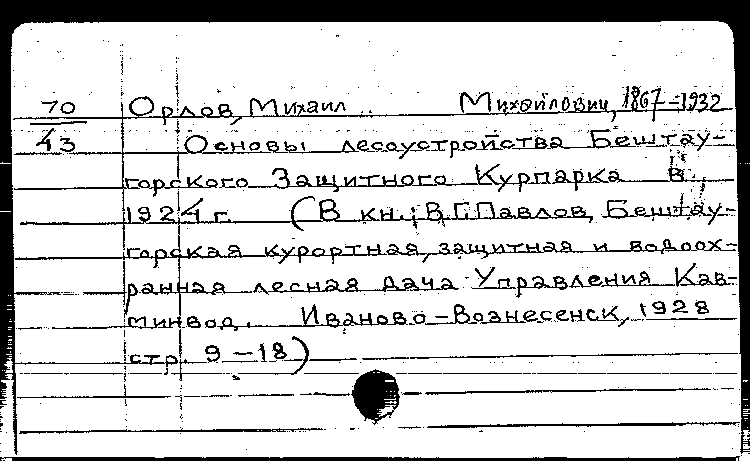 70 Орлов, Михаил .. Михайлович, 1867-1932
43 Основы лесоустройства Бештау-
горского Защитного Курпарка в
1924 г. (В кн.: В.Г.Павлов, Бештау-
горская курортная, защитная и водоох-
ранная лесная дача Управления Кав-
минвод. Иваново-Вознесенск, 1928
стр. 9-18)